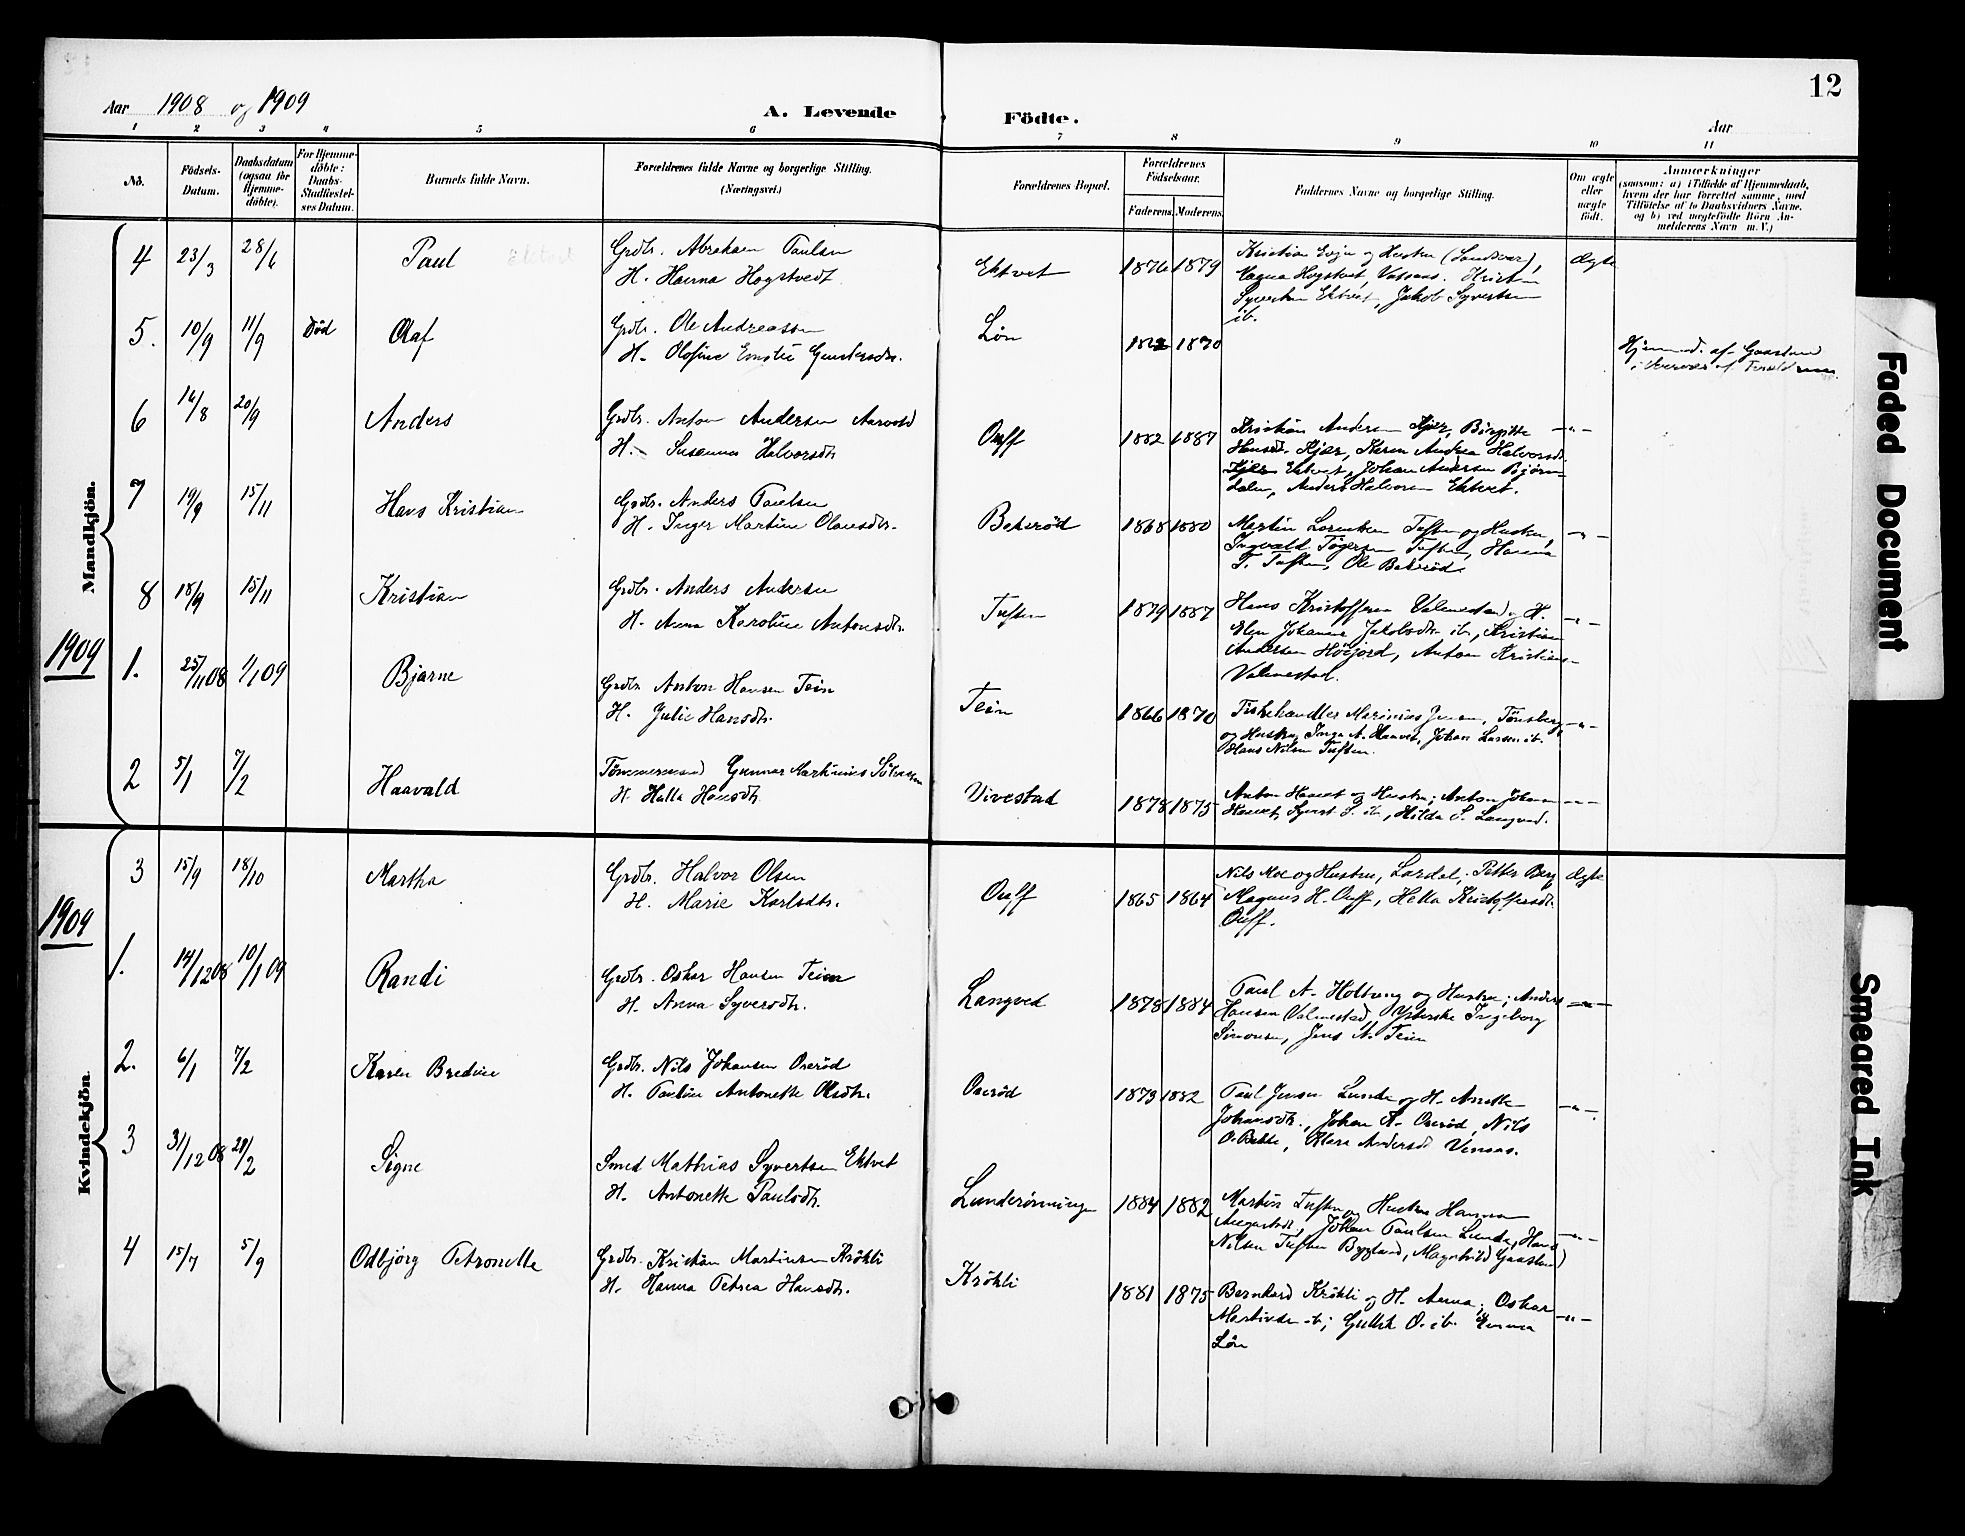 12
Aar 1908 og 1909
A. Levende Födte.
Aar
1 2 3 4 5 6 7 8 9 10 11
No.
Födsels-Datum.
Daabsdatum (ogsaa for Hjemme-döbte).
For Hjemme-döbte: Daabs-Stadfæstelses Datum.
Barnets fulde Navn.
Forældrenes fulde Navne og borgerlige Stilling.
(Næringsvei.)
Forældrenes Bopæl.
Forældrenes Födselsaar.
Faderens. Moderens.
Faddernes Navne og borgerlige Stilling.
Om ægte eller uægte födt.
Anmærkninger
(saasom: a) i Tilfælde af Hjemmedaab,
hvem der har forrettet samme, med
Tilföielse af to Daabsvidners Navne,
og b) ved uægtefödte Börn An-
melderens Navn m. V.)
Mandkjön.
4 23/3 28/6 Paul Grdbr. Abraham Paulsen
H. Hanna Hogstvedt
Ektvet 1876 1879 Kristian og Hustru (Sandsvær),
Hogstvet,
Syvertsen Ektvet, Jakob Syvertsen
ib.
Ægte
5. 10/9 11/9 Död Olaf Grdbr. Ole Andreassen
H. Olofine Emilie Gundersdtr.
Lön 1870
Hjemmed. af Gaasland
6 16/8 20/9 Anders Grdbr. Anton Andersen Aarvold
H. Susanna Halvorsdtr
Ouff 1882 1887 Kristian Andersen Kjær, Birgitte
Hansdt. Kjær, Karen Andrea Halvorsdt.
Ektvet, Johan Andersen Bjørn-
dalen, Anders Halvorsen Ektvet.
—"—
7 19/9 15/11 Hans Kristian Grdbr. Anders Paulsen
H. Inger Martine Olavesdtr.
Bekeröd 1868 1880 Martin Lorentsen Tuften og Hustru,
Ingvald Tögersen Tuften, Hanna
T. Tuften, Ole Bekeröd.
—"—
8 18/9 15/11 Kristian Grdbr. Anders Andersen
H. Anna Karoline Antonsdtr.
Tuften 1879 1887 Hans Kristoffersen Valmestad og H.
Elen Johanne Jakobsdtr ib., Kristian
Andersen Höijord, Anton Kristians-
Valmestad.
—"—
1909
1. 25/11 08 1/1 09 Bjarne Grdbr Anton Hansen Tein
H. Julie Hansdtr.
Tein 1866 1870 Fiskehandler Marinius Jensen, Tönsberg,
og Hustru, Inga A. Haavet, Johan Larsen ib.
Hans Nilsen Tuften.
—"—
2 5/1 7/2 Haavald Tömmermand Gunnar Martinius
H. Halla Hansdtr.
Vivestad 1878 1875 Anton Hauet og Hustru; Anton Johan
Hauet, Syvert S. ib, Hilda S. Langved.
—"—
Kvindekjön.
3 15/9 18/10 Martha Grdbr. Halvor Olsen
H. Marie Karlsdtr.
Ouff 1865 1864 Nils Moe og Hustru, Lardal, Petter Berg
Magnus H. Ouff, Hella Kristoffersdt.
Ouff.
Ægte
1909
1. 14/12 08 10/1 09 Randi Grdbr. Oskar Hansen Teien
H. Anna Syversdtr.
Langved 1878 1884 Paul A. Holtung og Hustru; Anders
Hansen Valmestad, Ingeborg
Simonsen, Jens A. Teien
—"—
2. 6/1 7/2 Karen Bredine Grdbr. Nils Johansen Oseröd
H. Pauline Antonette Olsdtr.
Oseröd 1873 1882 Paul Jensen Lunde og H. Anette
Johansdtr., Johan A. Oseröd, Nils
O. Bakke, Klara Andersd. Vensas.
—"—
3 31/12 08 28/2 Signe Smed Mathias Syvertsen Ektvet
H. Antonette Paulsdtr.
Lunderönningen 1884 1882 Martin Tuften og Hustru Hanna
Johan Paulsen Lunde, Hans
Nilsen Tuften Bygland, Magnhild Gaasland
—"—
4 15/7 5/9 Odbjørg Petronelle Grdbr. Kristian Martinsen Krökli
H. Hanna Petrea Hansdtr.
Krökli 1881 1875 Bernhard Krökli og H. Anna; Oskar
Martinsen ib; Gullik O. ib. Emma
Lön
—"—
Faded Document
Smeared Ink